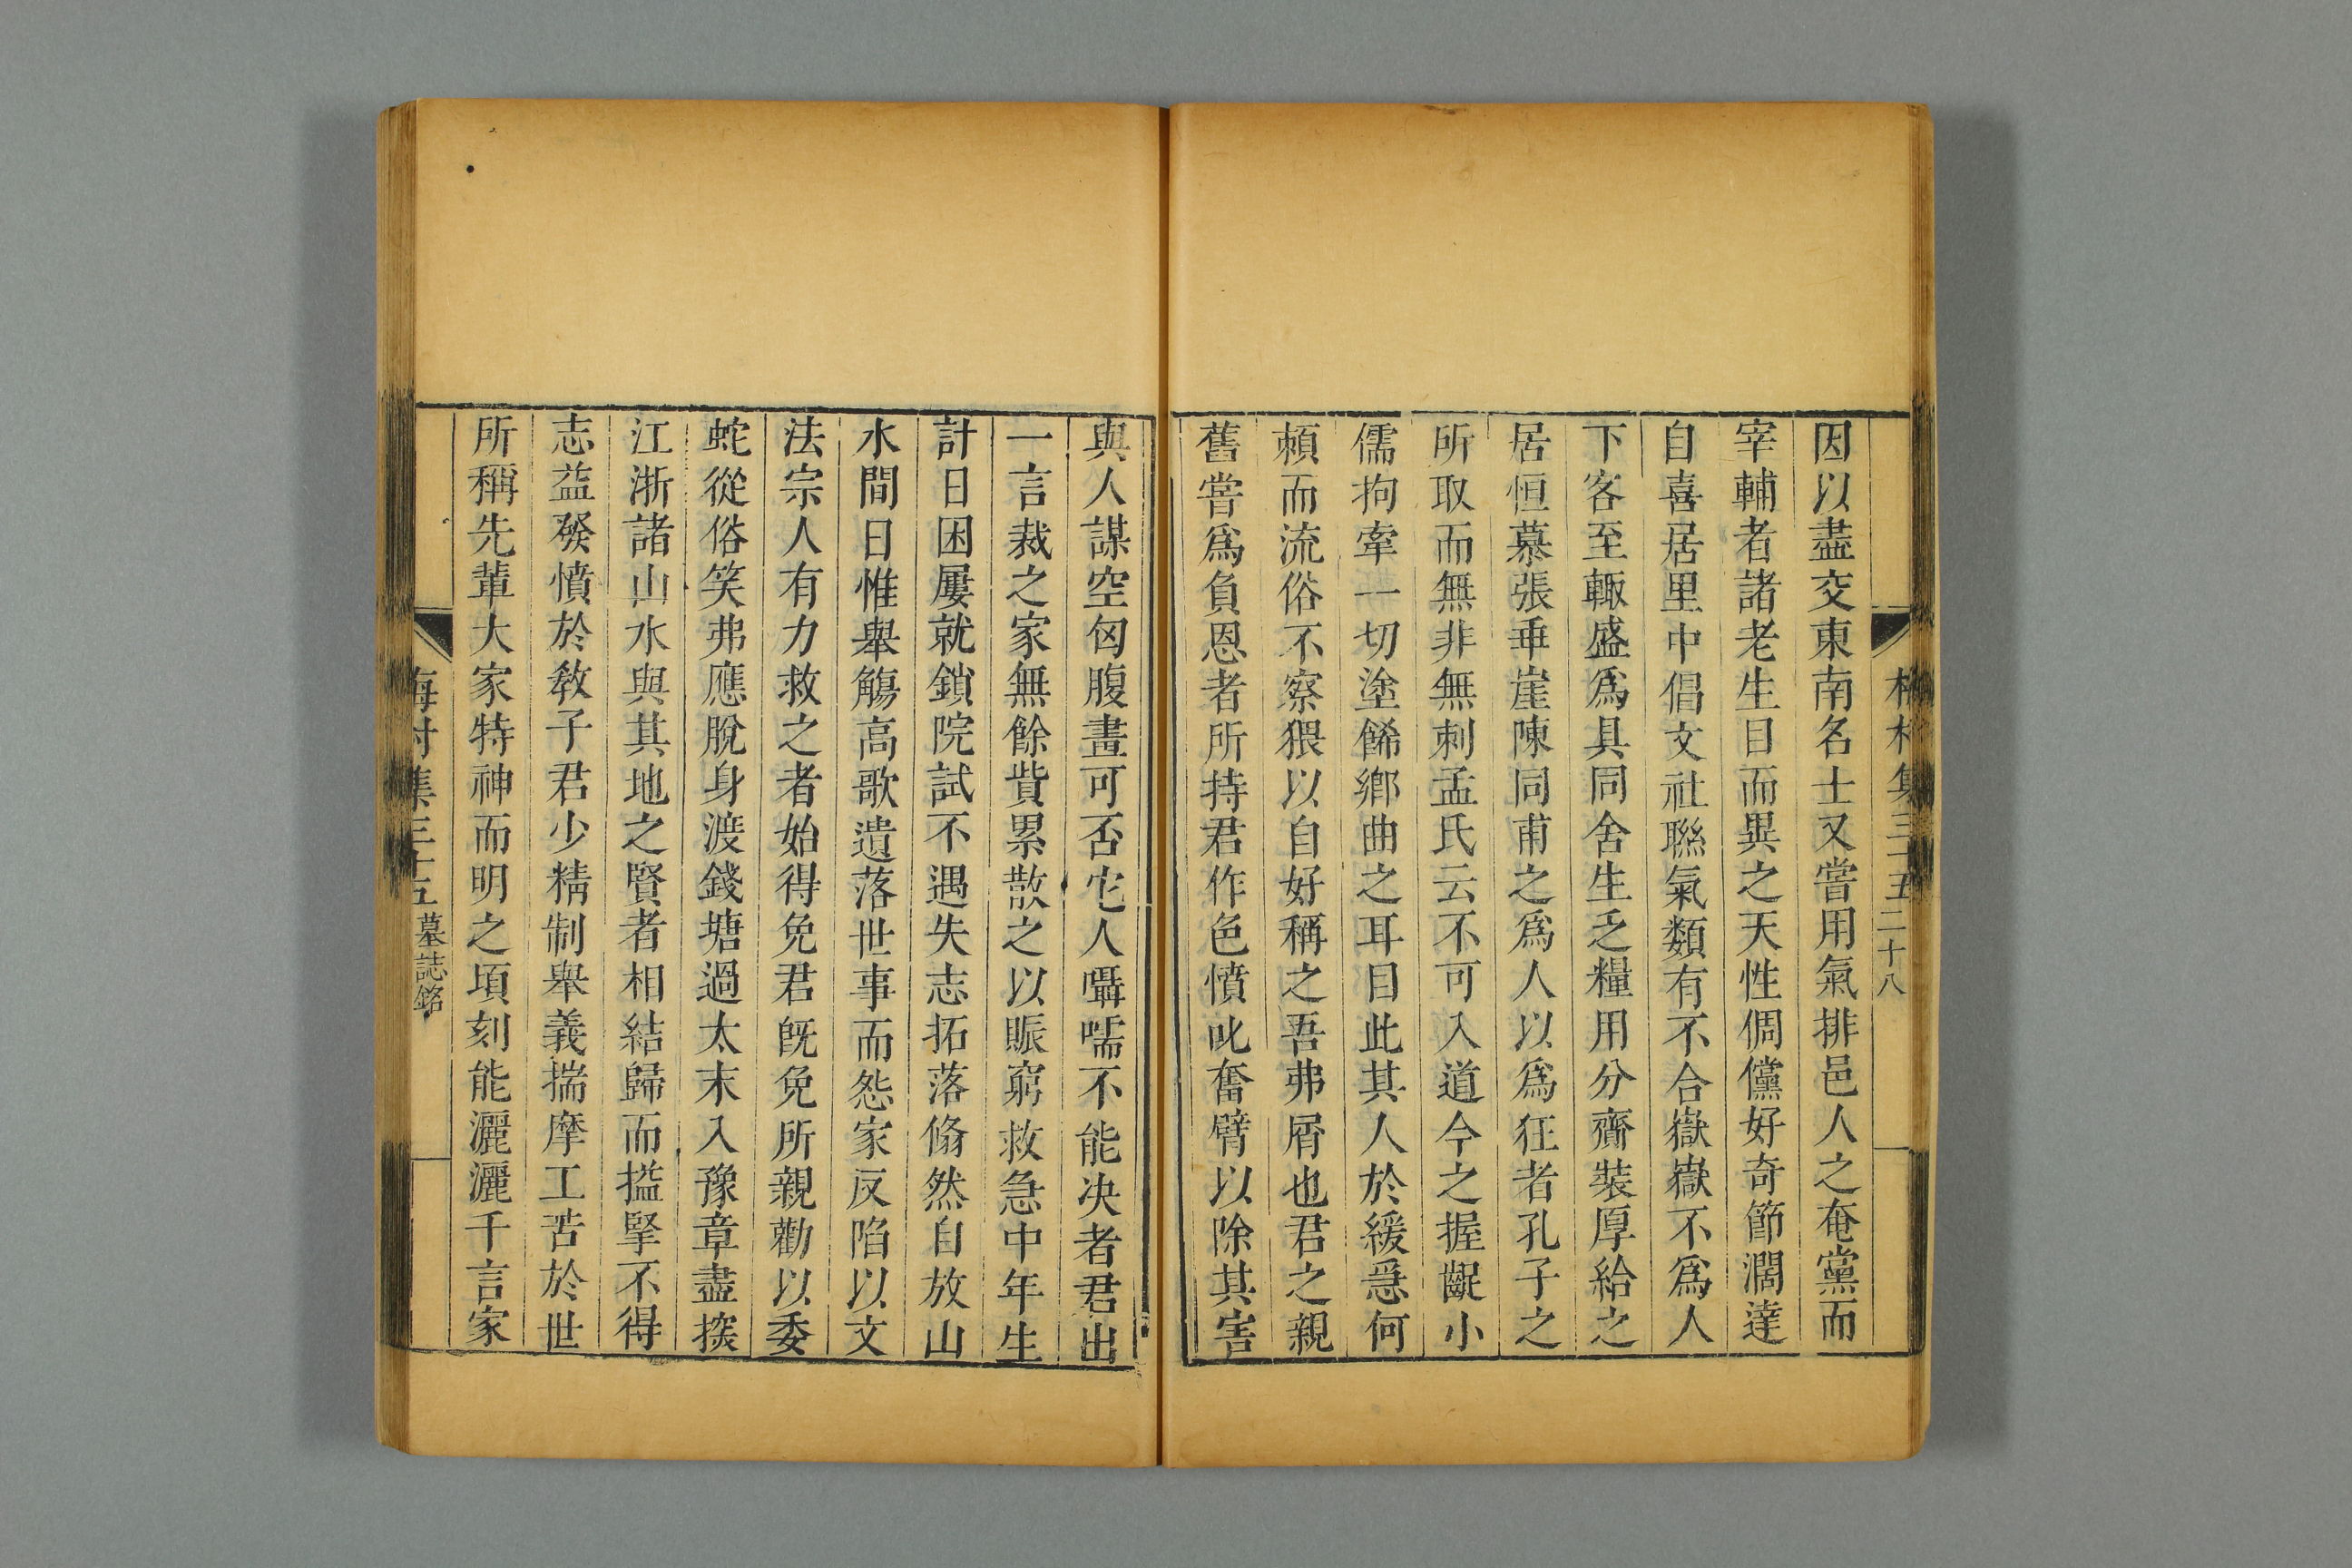 因以盡交東南名士又嘗用氣排邑人之奄黨而
宰輔者諸老生目而異之天性倜儻好奇節濶達
自喜居里中倡文社聯氣類有不合嶽嶽不爲人
下客至輙盛爲具同舍生乏糧用分齎裝厚給之
居恒慕張乖崖陳同甫之爲人以爲狂者孔子之
所取而無非無刺孟氏云不可入道今之握齪小
儒拘牽一切塗餙鄉曲之耳目此其人於緩急何
頼而流俗不察猥以自好稱之吾弗屑也君之親
舊嘗爲負恩者所持君作色憤叱奮臂以除其害
集三十五 二十八
與人謀空匈腹畫可否它人囁嚅不能决者君出
一言裁之家無餘貲累散之以賑窮救急中年生
計日困屢就鎖院試不遇失志拓落翛然自放山
水間日惟舉觴高歌遺落世事而怨家反陷以文
法宗人有力救之者始得免君旣免所親勸以委
蛇從俗笑弗應脫身渡錢塘過太末入豫章盡揬
江浙諸山水與其地之賢者相結歸而搤掔不得
志益發憤於敎子君少精制舉義揣摩工苦於世
所稱先輩大家特神而明之頃刻能灑灑千言家
集三十五 墓誌銘